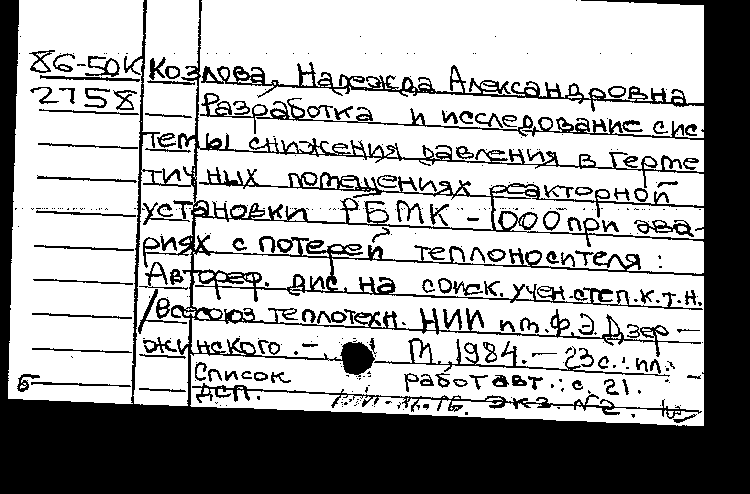 86-50К Козлова, Надежда Александровна
2758 Разработка и исследование сис-
темы снижения давления в герме
тичных помещениях реакторной
установки РБМК-1000 при ава-
риях с потерей теплоносителя:
Автореф. дис. на соиск. учен. степ. к.т.н.
/Всесоюз. теплотехн. НИИ им. Ф.Э. Дзер-
жинского. - М., 1984. - 23 с.: ил. -
Список работ авт.: с. 21.
б ДСП. Экз. №2.